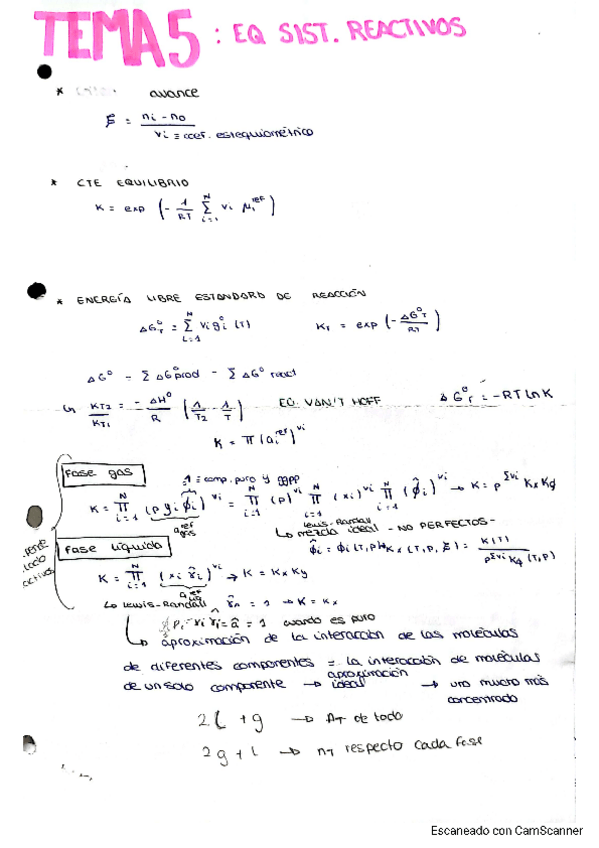 TEMA 5 : EQ SIST. REACTIVOS
* avance
ξ = (ni - no) / (νi = coef. estequiométrico)
* CTE EQUILIBRIO
K = exp (- 1/RT Σ_{i=1}^{N} νi μi^ref)
* ENERGÍA LIBRE ESTANDARD DE REACCIÓN
ΔG°r = Σ_{i=1}^{N} νi gi° (T)    KT = exp (- ΔG°r / RT)
ΔG° = ΣΔG°prod - ΣΔG° react
Ln KT2/KT1 = - ΔH°/R (1/T2 - 1/T)    EQ. VAN'T HOFF    ΔG°r = -RT Ln K
K = π (ai^ref)^νi
Fase gas
1 = comp. puro y ggpp
K = π_{i=1}^{N} (p yi φ̂i)^νi = π_{i=1}^{N} (p)^νi π_{i=1}^{N} (xi)^νi π_{i=1}^{N} (φ̂i)^νi → K = p^Σνi Kx Kφ
a ref gas
Lewis-Randall
↳ mezcla ideal - NO PERFECTOS -
φ̂i = φi (T,P) Kx (T, P, ξ) = K(T) / (p^Σνi Kφ (T,P))
Fase líquida
K = π_{i=1}^{N} (xi γ̂i)^νi → K = Kx Kγ
↳ Lewis-Randall = 1 → K = Kx
= 1 cuando es puro
↳ aproximación de la interacción de las moléculas
de diferentes componentes = la interacción de moléculas
de un solo componente → aproximación ideal → uno mucho más concentrado
2L + g → nT de todo
2g + L → nT respecto cada fase
Escaneado con CamScanner